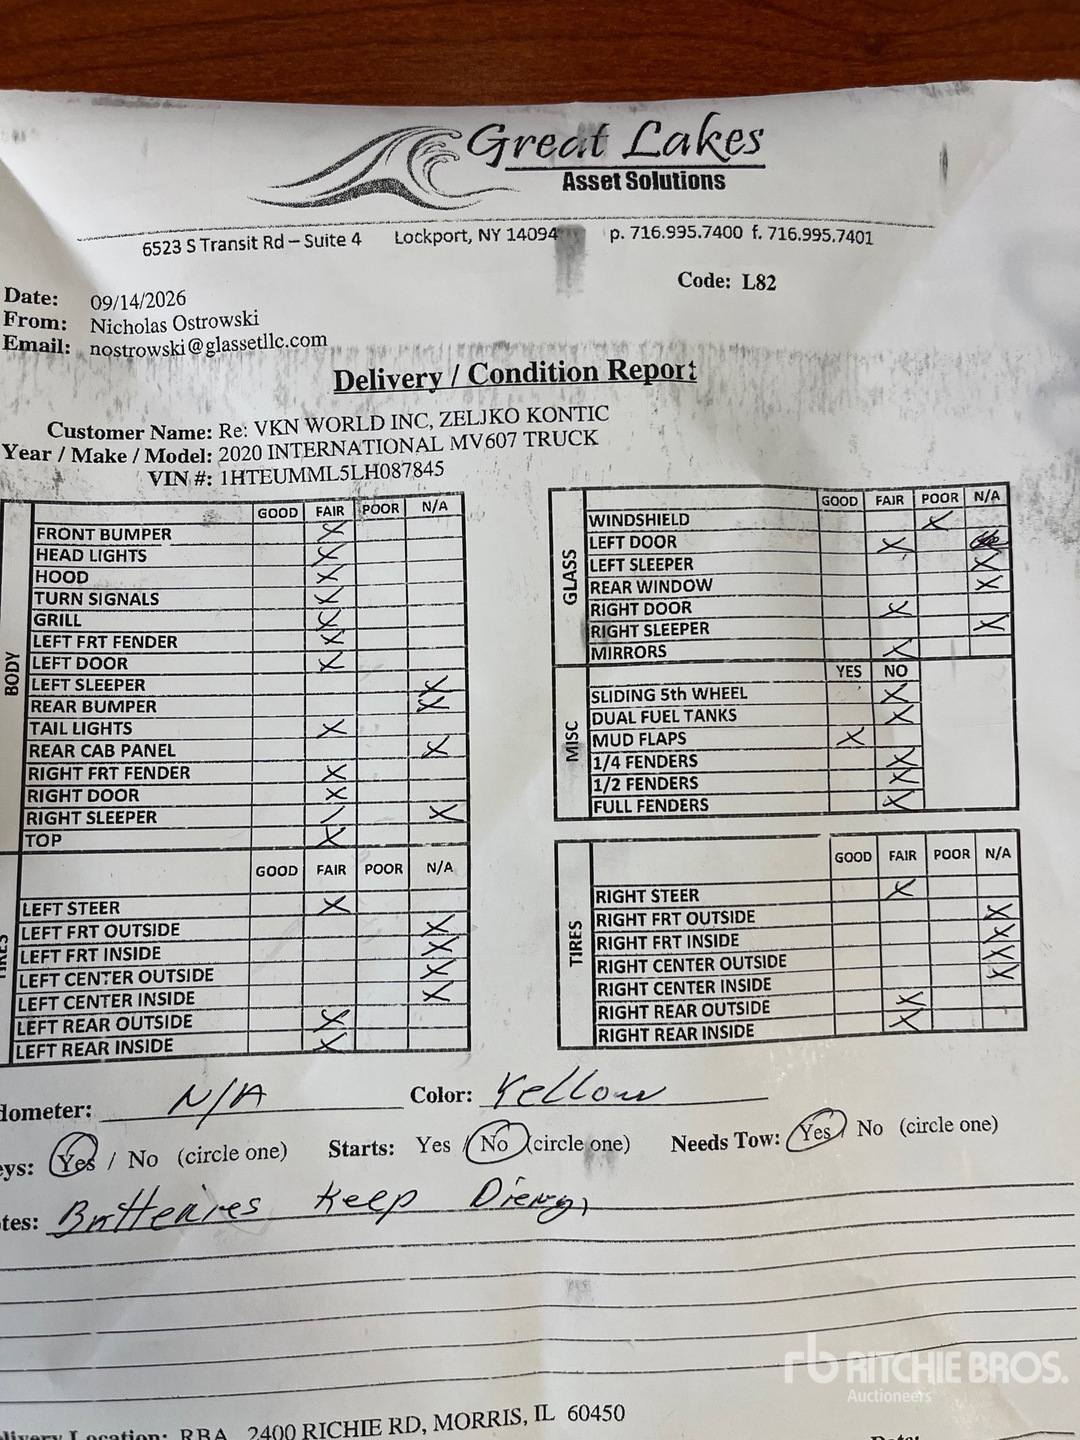 Great Lakes
Asset Solutions
6523 S Transit Rd – Suite 4 Lockport, NY 14094 p. 716.995.7400 f. 716.995.7401
Code: L82
Date: 09/14/2026
From: Nicholas Ostrowski
Email: nostrowski@glassetllc.com
Delivery / Condition Report
Customer Name: Re: VKN WORLD INC, ZELJKO KONTIC
Year / Make / Model: 2020 INTERNATIONAL MV607 TRUCK
VIN #: 1HTEUMML5LH087845
BODY
GOOD FAIR POOR N/A
FRONT BUMPER X
HEAD LIGHTS X
HOOD X
TURN SIGNALS X
GRILL X
LEFT FRT FENDER X
LEFT DOOR X
LEFT SLEEPER X
REAR BUMPER X
TAIL LIGHTS X
REAR CAB PANEL X
RIGHT FRT FENDER X
RIGHT DOOR X
RIGHT SLEEPER X
TOP X
GOOD FAIR POOR N/A
LEFT STEER X
LEFT FRT OUTSIDE X
LEFT FRT INSIDE X
LEFT CENTER OUTSIDE X
LEFT CENTER INSIDE X
LEFT REAR OUTSIDE X
LEFT REAR INSIDE X
GLASS
GOOD FAIR POOR N/A
WINDSHIELD X
LEFT DOOR X
LEFT SLEEPER X
REAR WINDOW X
RIGHT DOOR X
RIGHT SLEEPER X
MIRRORS X
MISC
YES NO
SLIDING 5th WHEEL X
DUAL FUEL TANKS X
MUD FLAPS X
1/4 FENDERS X
1/2 FENDERS X
FULL FENDERS X
TIRES
GOOD FAIR POOR N/A
RIGHT STEER X
RIGHT FRT OUTSIDE X
RIGHT FRT INSIDE X
RIGHT CENTER OUTSIDE X
RIGHT CENTER INSIDE X
RIGHT REAR OUTSIDE X
RIGHT REAR INSIDE X
dometer: N/A Color: Yellow
eys: Yes / No (circle one) Starts: Yes / No (circle one) Needs Tow: Yes / No (circle one)
tes: Batteries Keep
rb RITCHIE BROS.
Auctioneers
elivery Location: RBA 2400 RICHIE RD, MORRIS, IL 60450
Date: